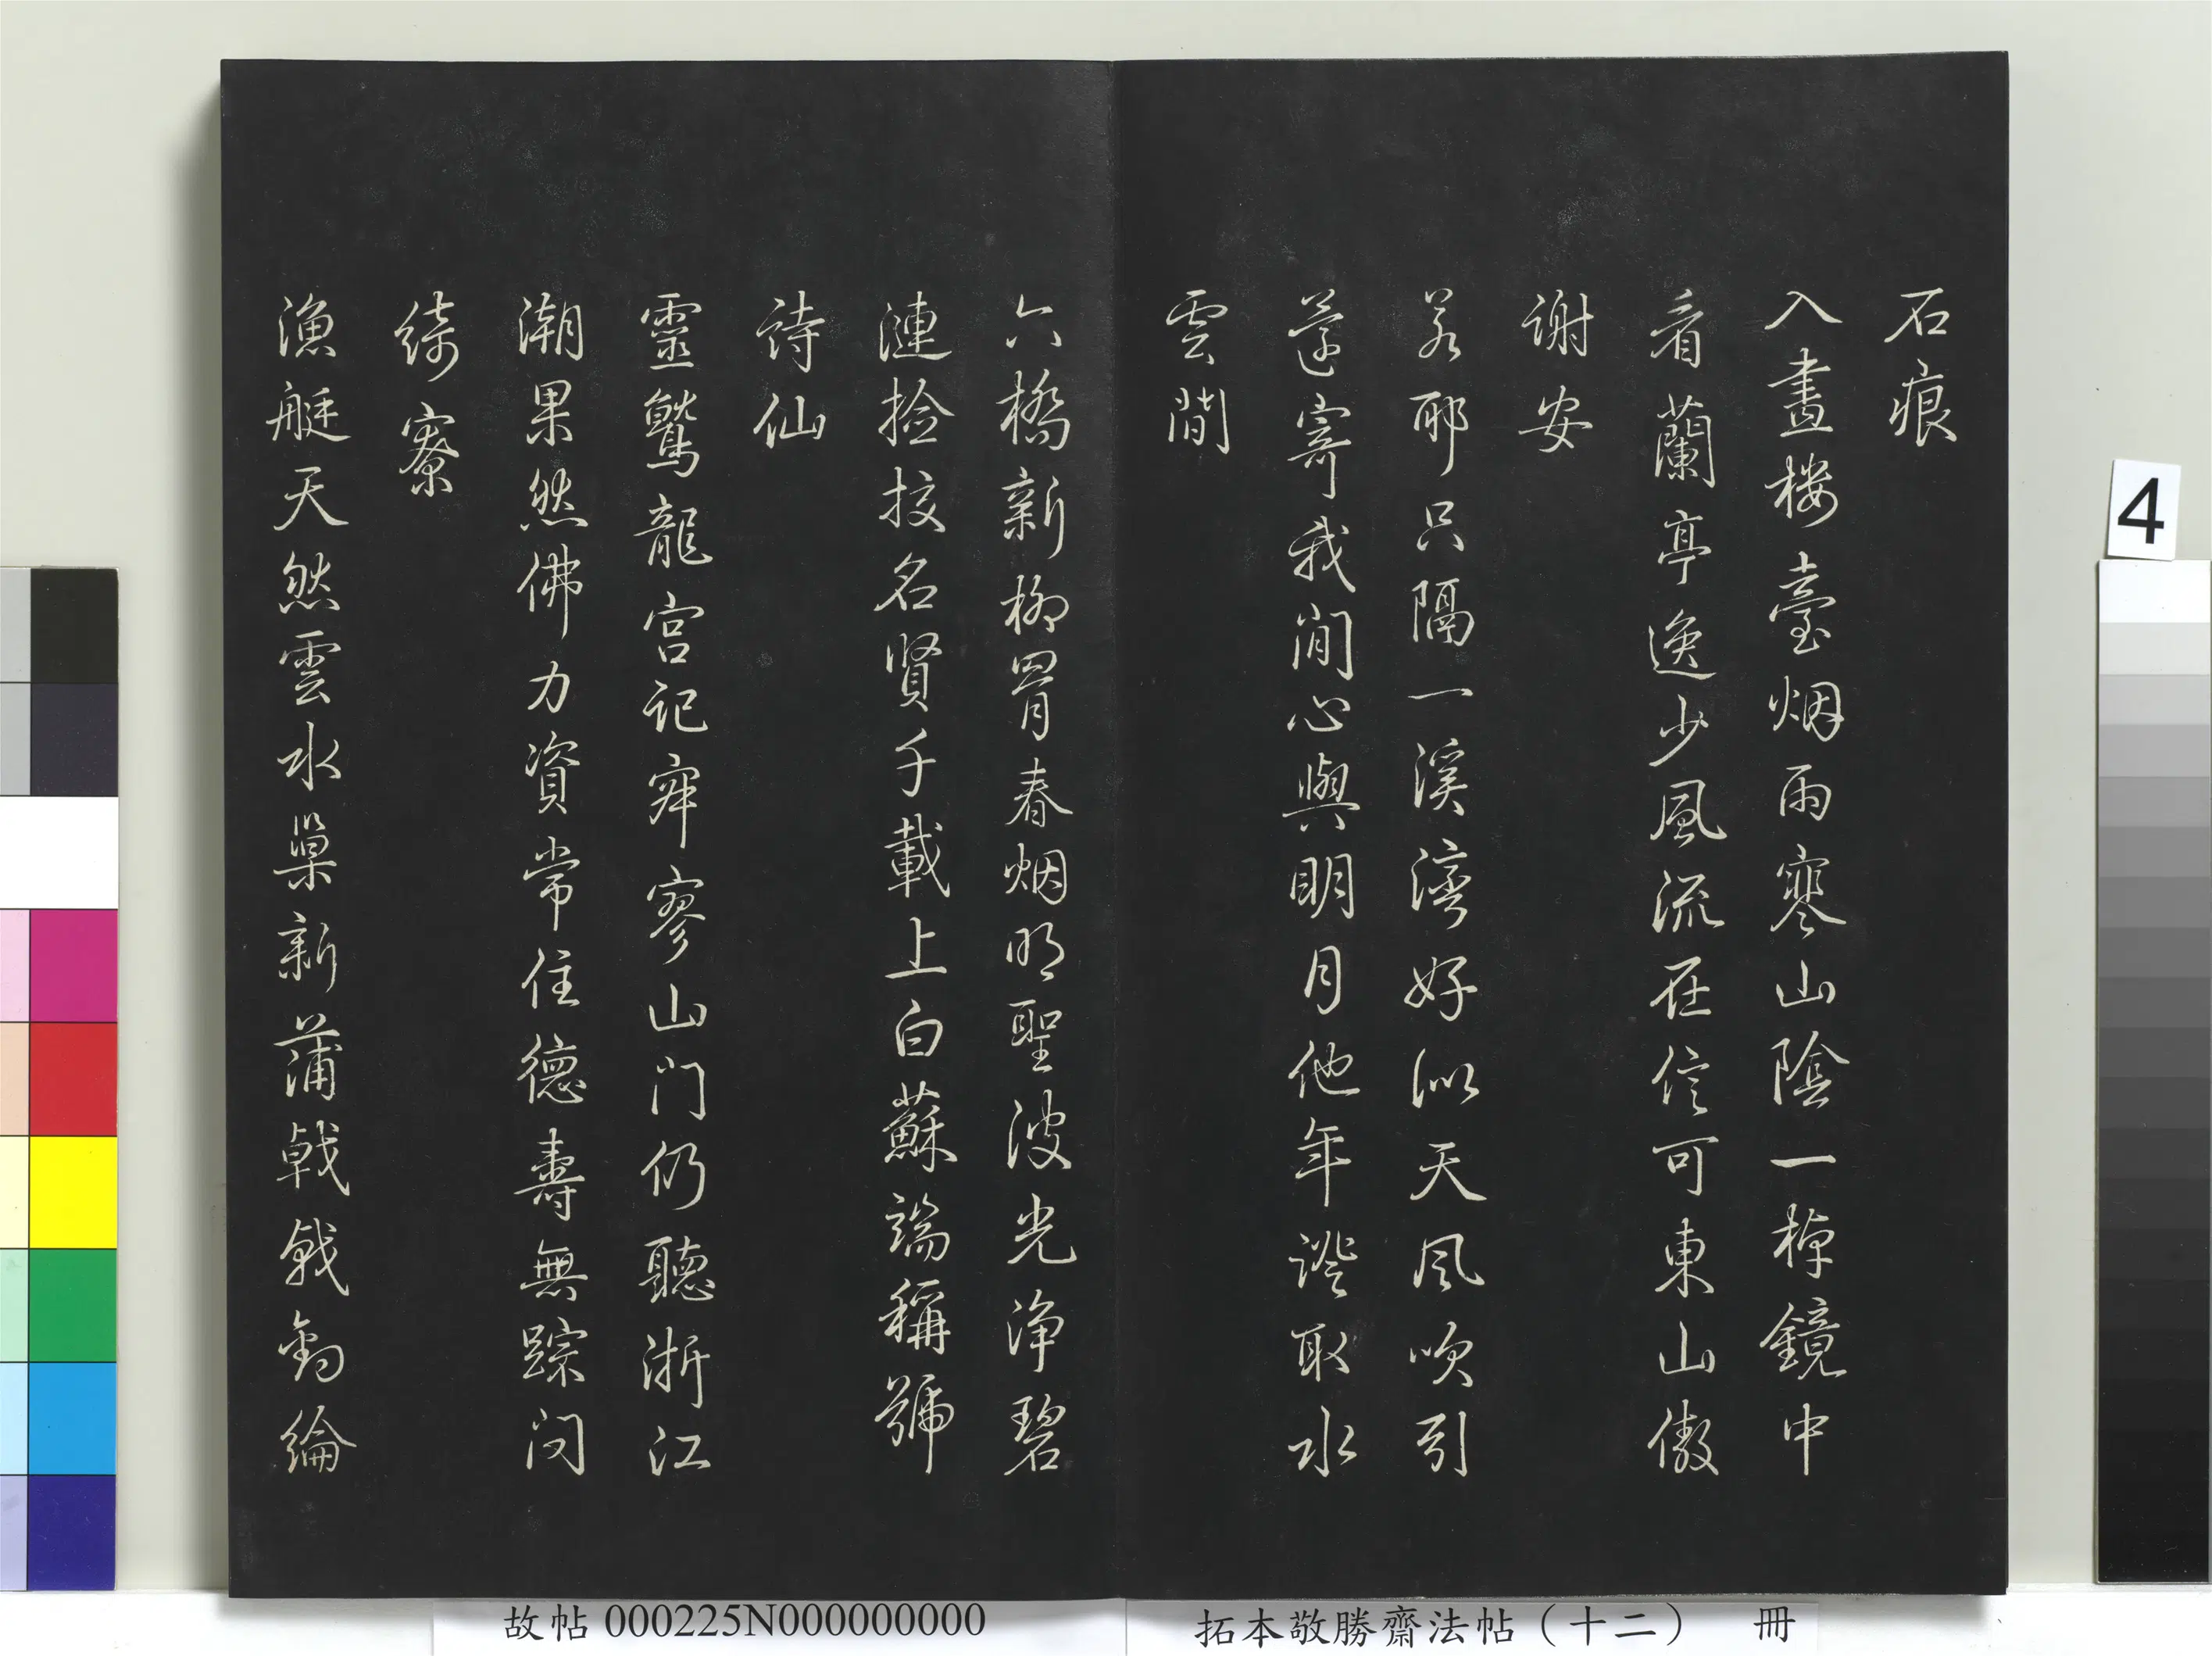 石痕
入畫樓臺烟雨寒山陰一棹鏡中
看蘭亭逸少風流在信可東山傲
謝安
若耶只隔一溪灣好似天風吹引
還寄我閒心與明月他年證取水
雲間
六橋新柳罥春烟明聖波光淨碧
漣撿挍名賢千載上白蘇端稱號
詩仙
靈鷲龍宮記寂寥山门仍聽浙江
潮果然佛力資常住德壽無踪问
綺寮
漁艇天然雲水巢新蒲戟戟釣綸
4
故帖 000225N000000000
拓本敬勝齋法帖（十二） 冊